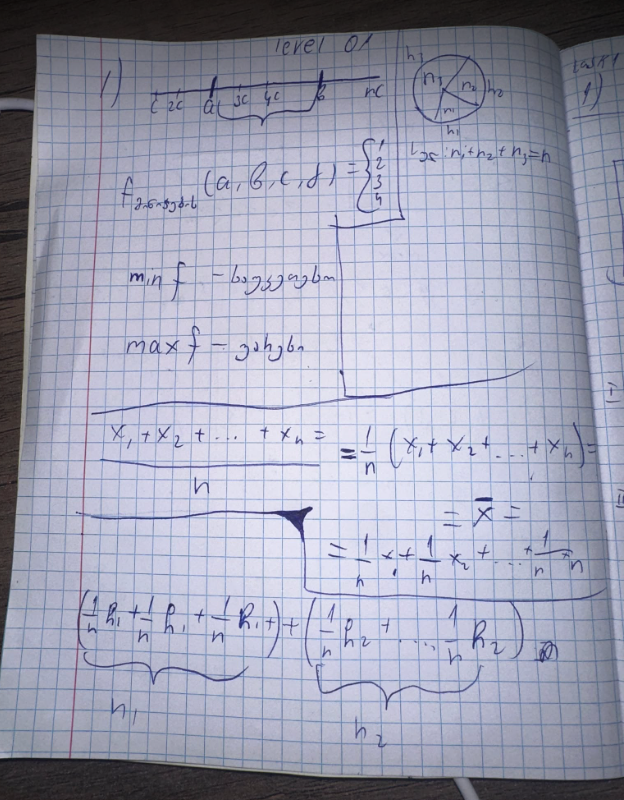 level 01
1)
c 2c a 3c 4c b nc
h₃ n₃ n₂ h₂ n₁ h₁
n₁+n₂+n₃=n
f (a, b, c, d) = { 1 2 3 4
min f –
max f –
(x₁ + x₂ + ... + xₙ) / n = = 1/n (x₁ + x₂ + ... + xₙ) =
= x̄ =
= 1/n x₁ + 1/n x₂ + ... + 1/n xₙ
(1/n h₁ + 1/n h₁ + 1/n h₁ +) + (1/n h₂ + ... 1/n h₂)
n₁ n₂
1)
I
II